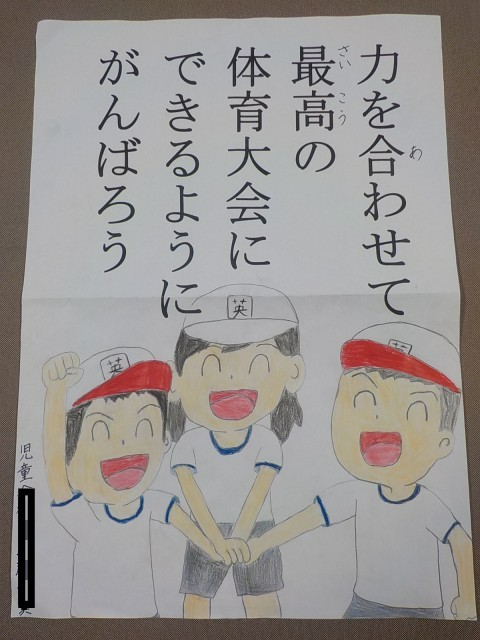 力を合わせて
最高の
体育大会に
できるように
がんばろう
あ
さい
こう
英
英
英
児童